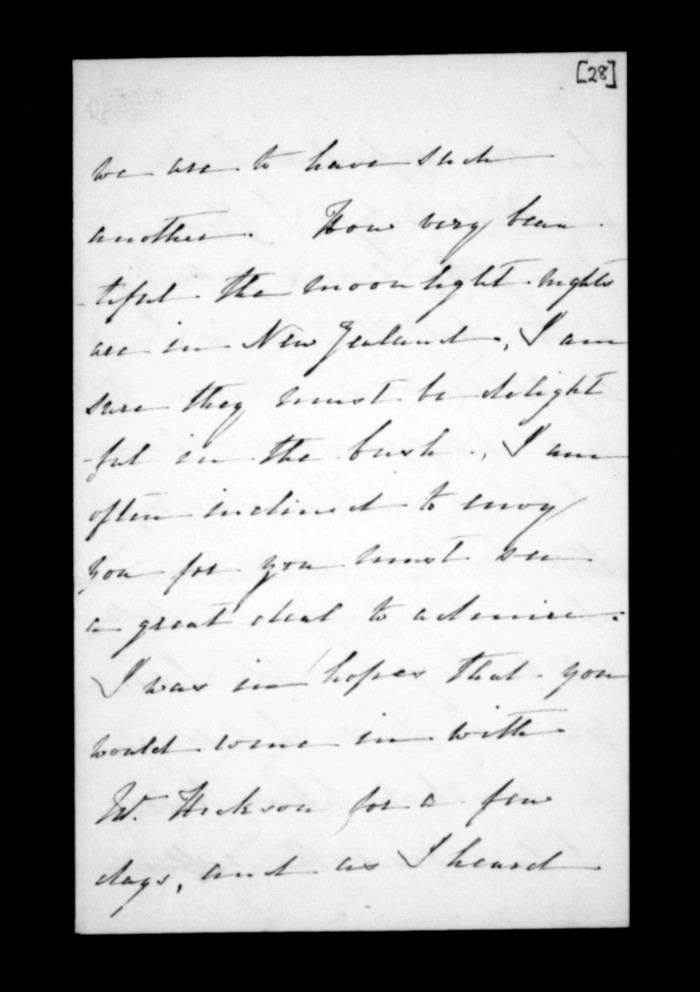 [28]
we are to have such
another. How very beau
-tiful the moonlight nights
are in New Zealand, I am
sure they must be delight
-ful in the bush, I am
often inclined to envy
you for you must see
a great deal to admire.
I was in hopes that you
would come in with
W. Hickson for a few
days, and as I heard